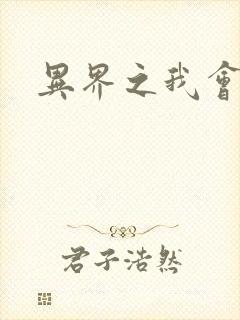 異界之我會
君子浩然